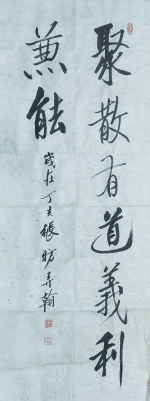 聚散有道義利
兼能
歲在丁亥張昉弄翰